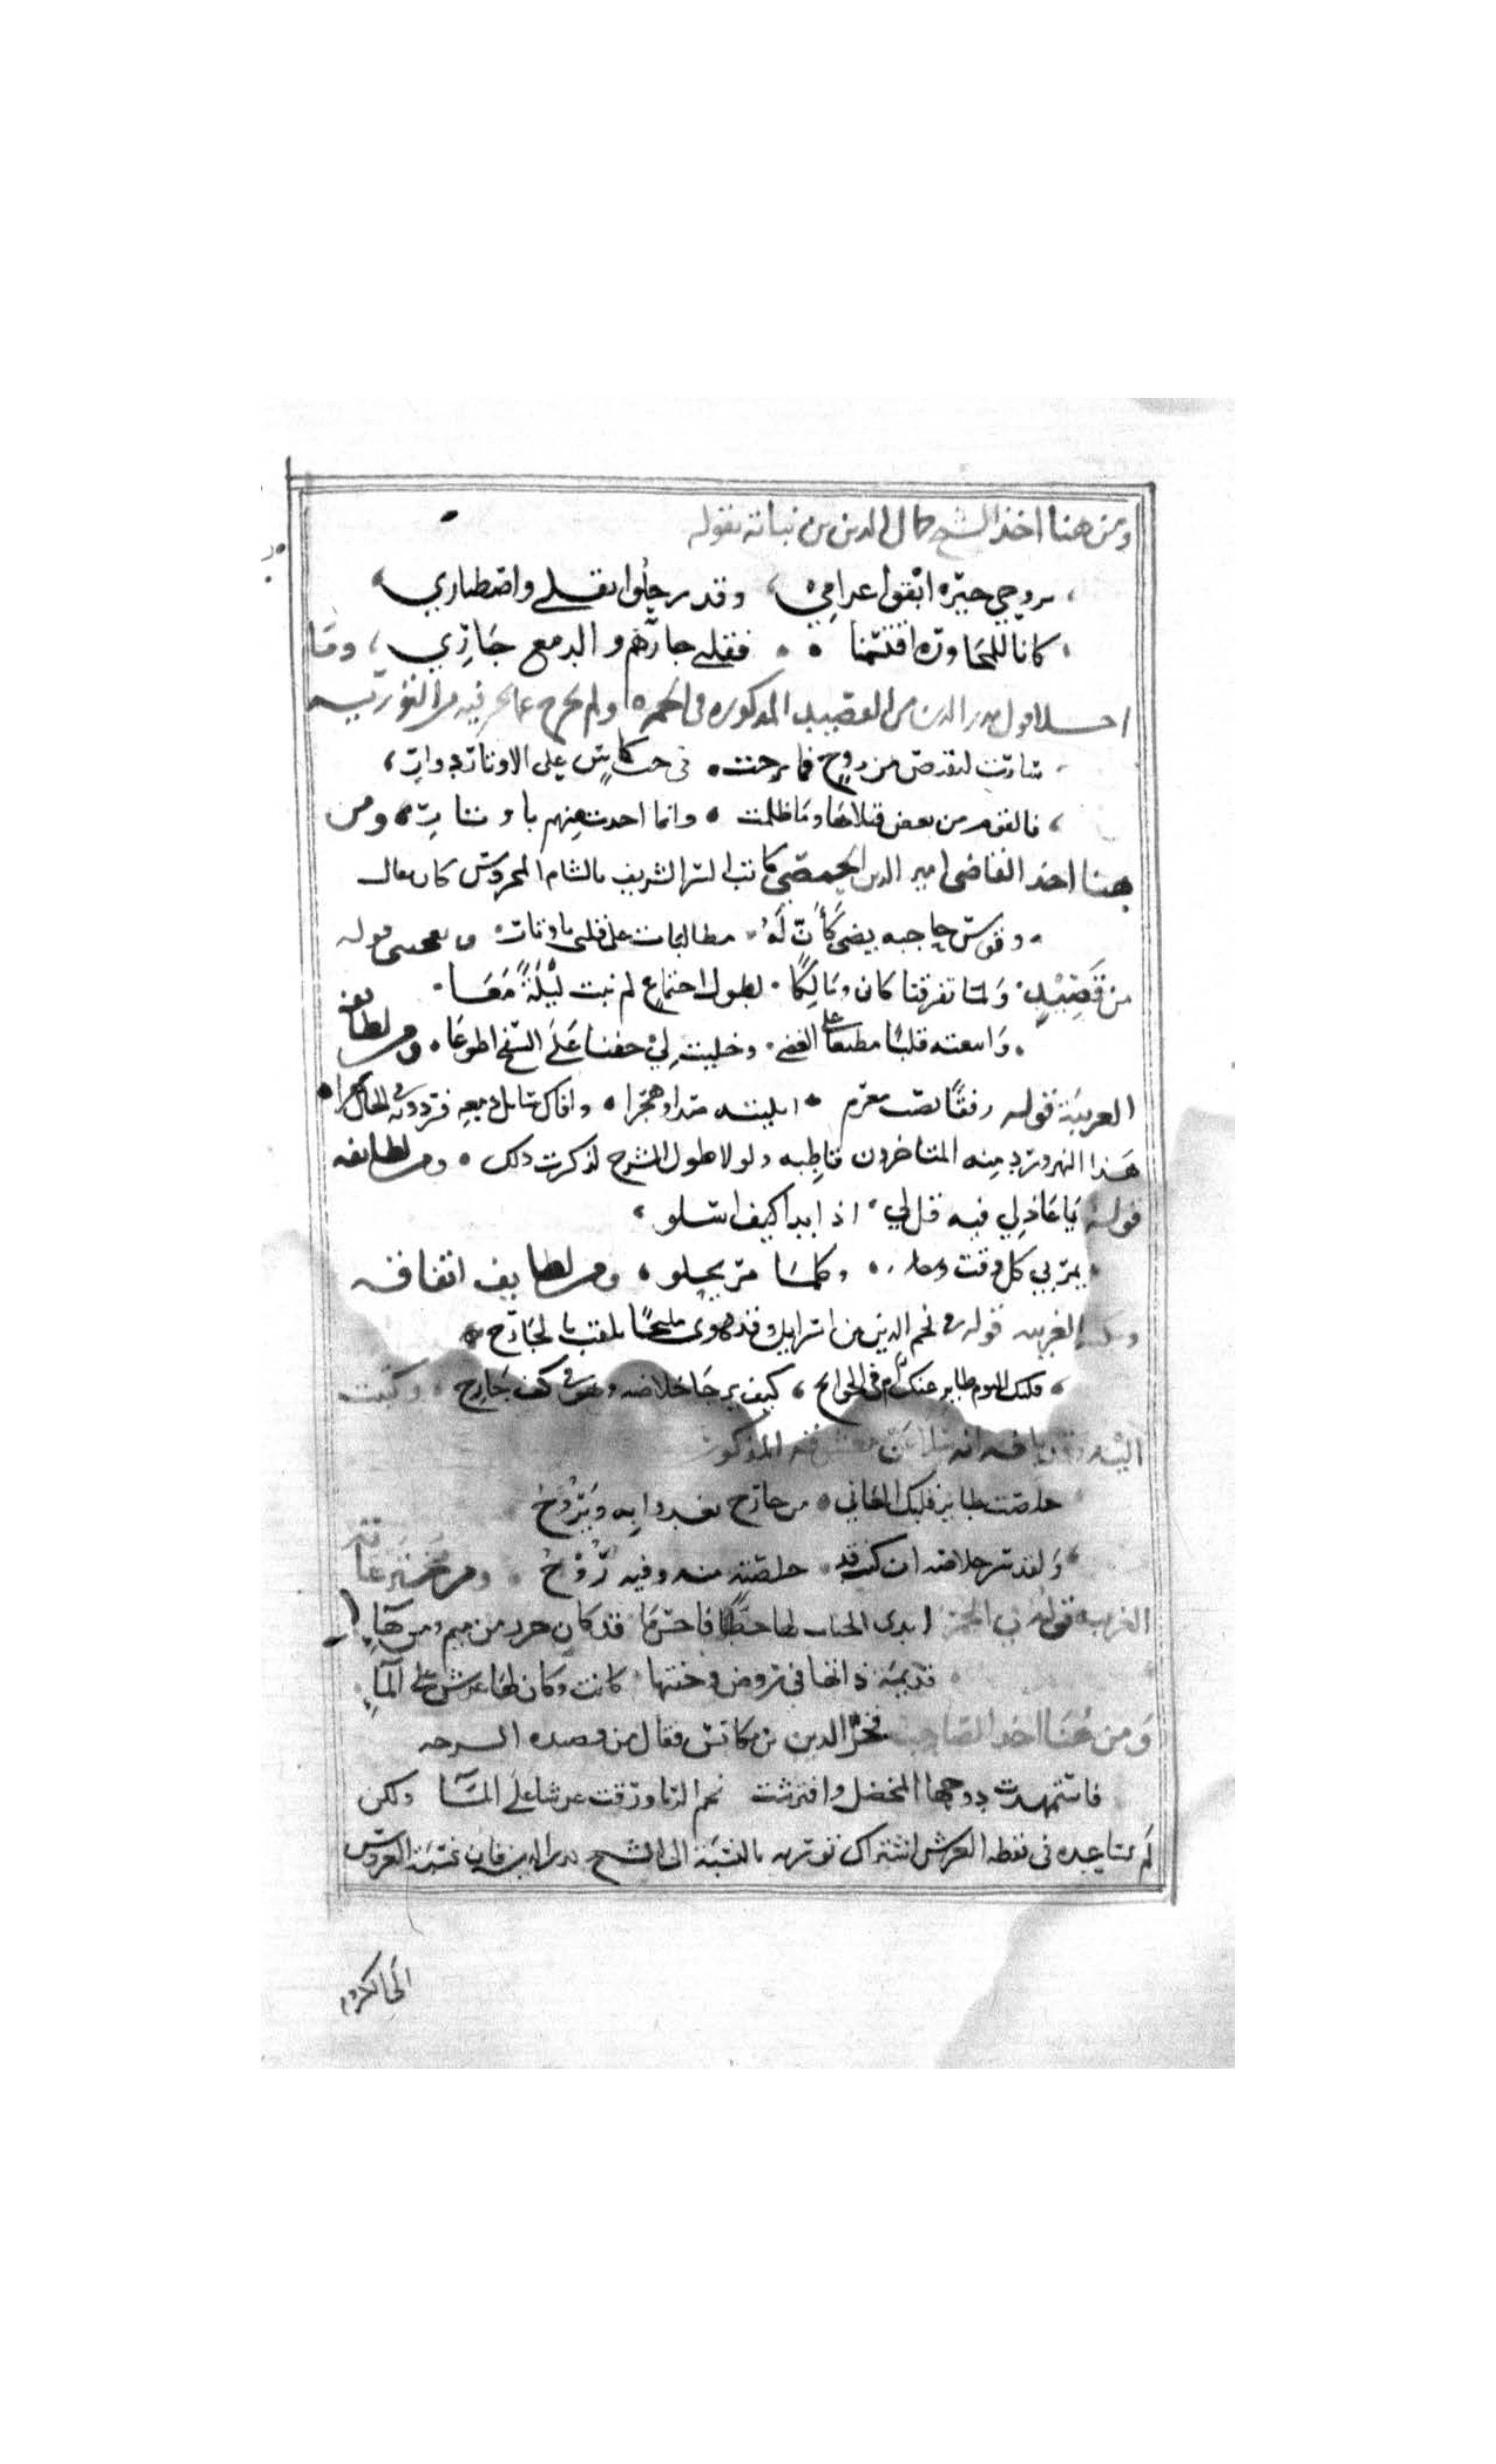 ومن هنا اخذ الشيخ جمال الدين بن نباته بقوله
بروحي جيره ابقوا غرامي وقد رحلوا بقلبي واصطباري
كانا للمجاوره اقتسمنا فقلبي جارهم والدمع جاري وما
احسلا قول بدر الدين من القصيده المذكوره في الخمره ولم يخرج عما نحن فيه من التوريه
ثارت لتقتص من روح فما برحت في حث كاس على الاوتار دوار
فالقوم من بعض قتلاها وما ظلمت وانما اخذت منهم باوتار ومن
هنا اخذ القاضي امين الدين الحمصي كاتب السر الشريف بالشام المحروس كان فقال
وقوس حاجبه يضحي كأن له مطالبات على قلبي باوتار ويعجبني قوله
من قصيد ولما تفرقنا كان ومالكا لطول اجتماع لم نبت ليلة معا
واتبعته قلبا مطيعا على الغضى وخليت لي جفنا على السفح اطوعا ومن لطايفه
الغريبة قوله رفقا بصب مغرم ابليته صدا وهجرا وافاك سايل دمعه فرددته في الحال نهرا
هذا النهر ورد منه المتاخرون قاطبه ولولا طول الشرح لذكرت ذلك ومن لطايفه
قوله يا عاذلي فيه قل لي اذا بدا كيف اسلو
يمر بي كل وقت وكلما مر يحلو ومن لطايف اتفاقه
الغريبه قوله في نجم الدين بن اسرايل وقد هوى مليحا يلقب بالجارح
قلبك اليوم طاير عنك ام في الجوانح كيف يرجا خلاصه وهو في كف جارح وكتب
اليه وقد بلغه انه سلا عن عشقته المذكور
خلصت طاير قلبك العاني من جارح يغدوا به ويروح
ولقد يسر خلاصه ان كنت قد خلصته منه وفيه روح ومن مخترعاته
الغريبه قوله في الخمر ابدى الحباب لها خطا فاحسن ما قد كان حرر من ميم ومن هاء
قديمة ذاتها في روض جنتها كانت وكان لها عرش على الماء
ومن هنا اخذ الصاحب فخر الدين بن مكانس فقال من قصيده السرحه
فاستمهدت دوحها المخضل وافترشت نجم الربا ورقت عرشا على الماء ولكن
لم يساعده في لفظه العرش اشتراك توريه بالنسبة الى الشيخ بدر الدين فان تسمية العروش
الى الكروم